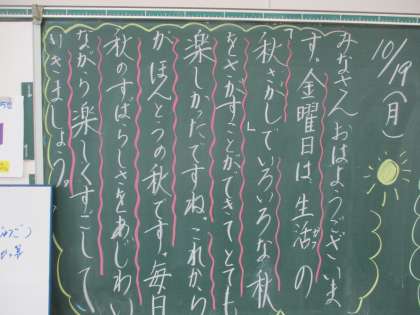 10/19(月)
みなさんおはようございま
す。金曜日は、生活の
「秋さがし」でいろいろな秋
をさがすことができてとても
楽しかったですね。これから
がほんとうの秋です。毎日
秋のすばらしさをあじわい
ながら楽しくすごして
いきましょう。